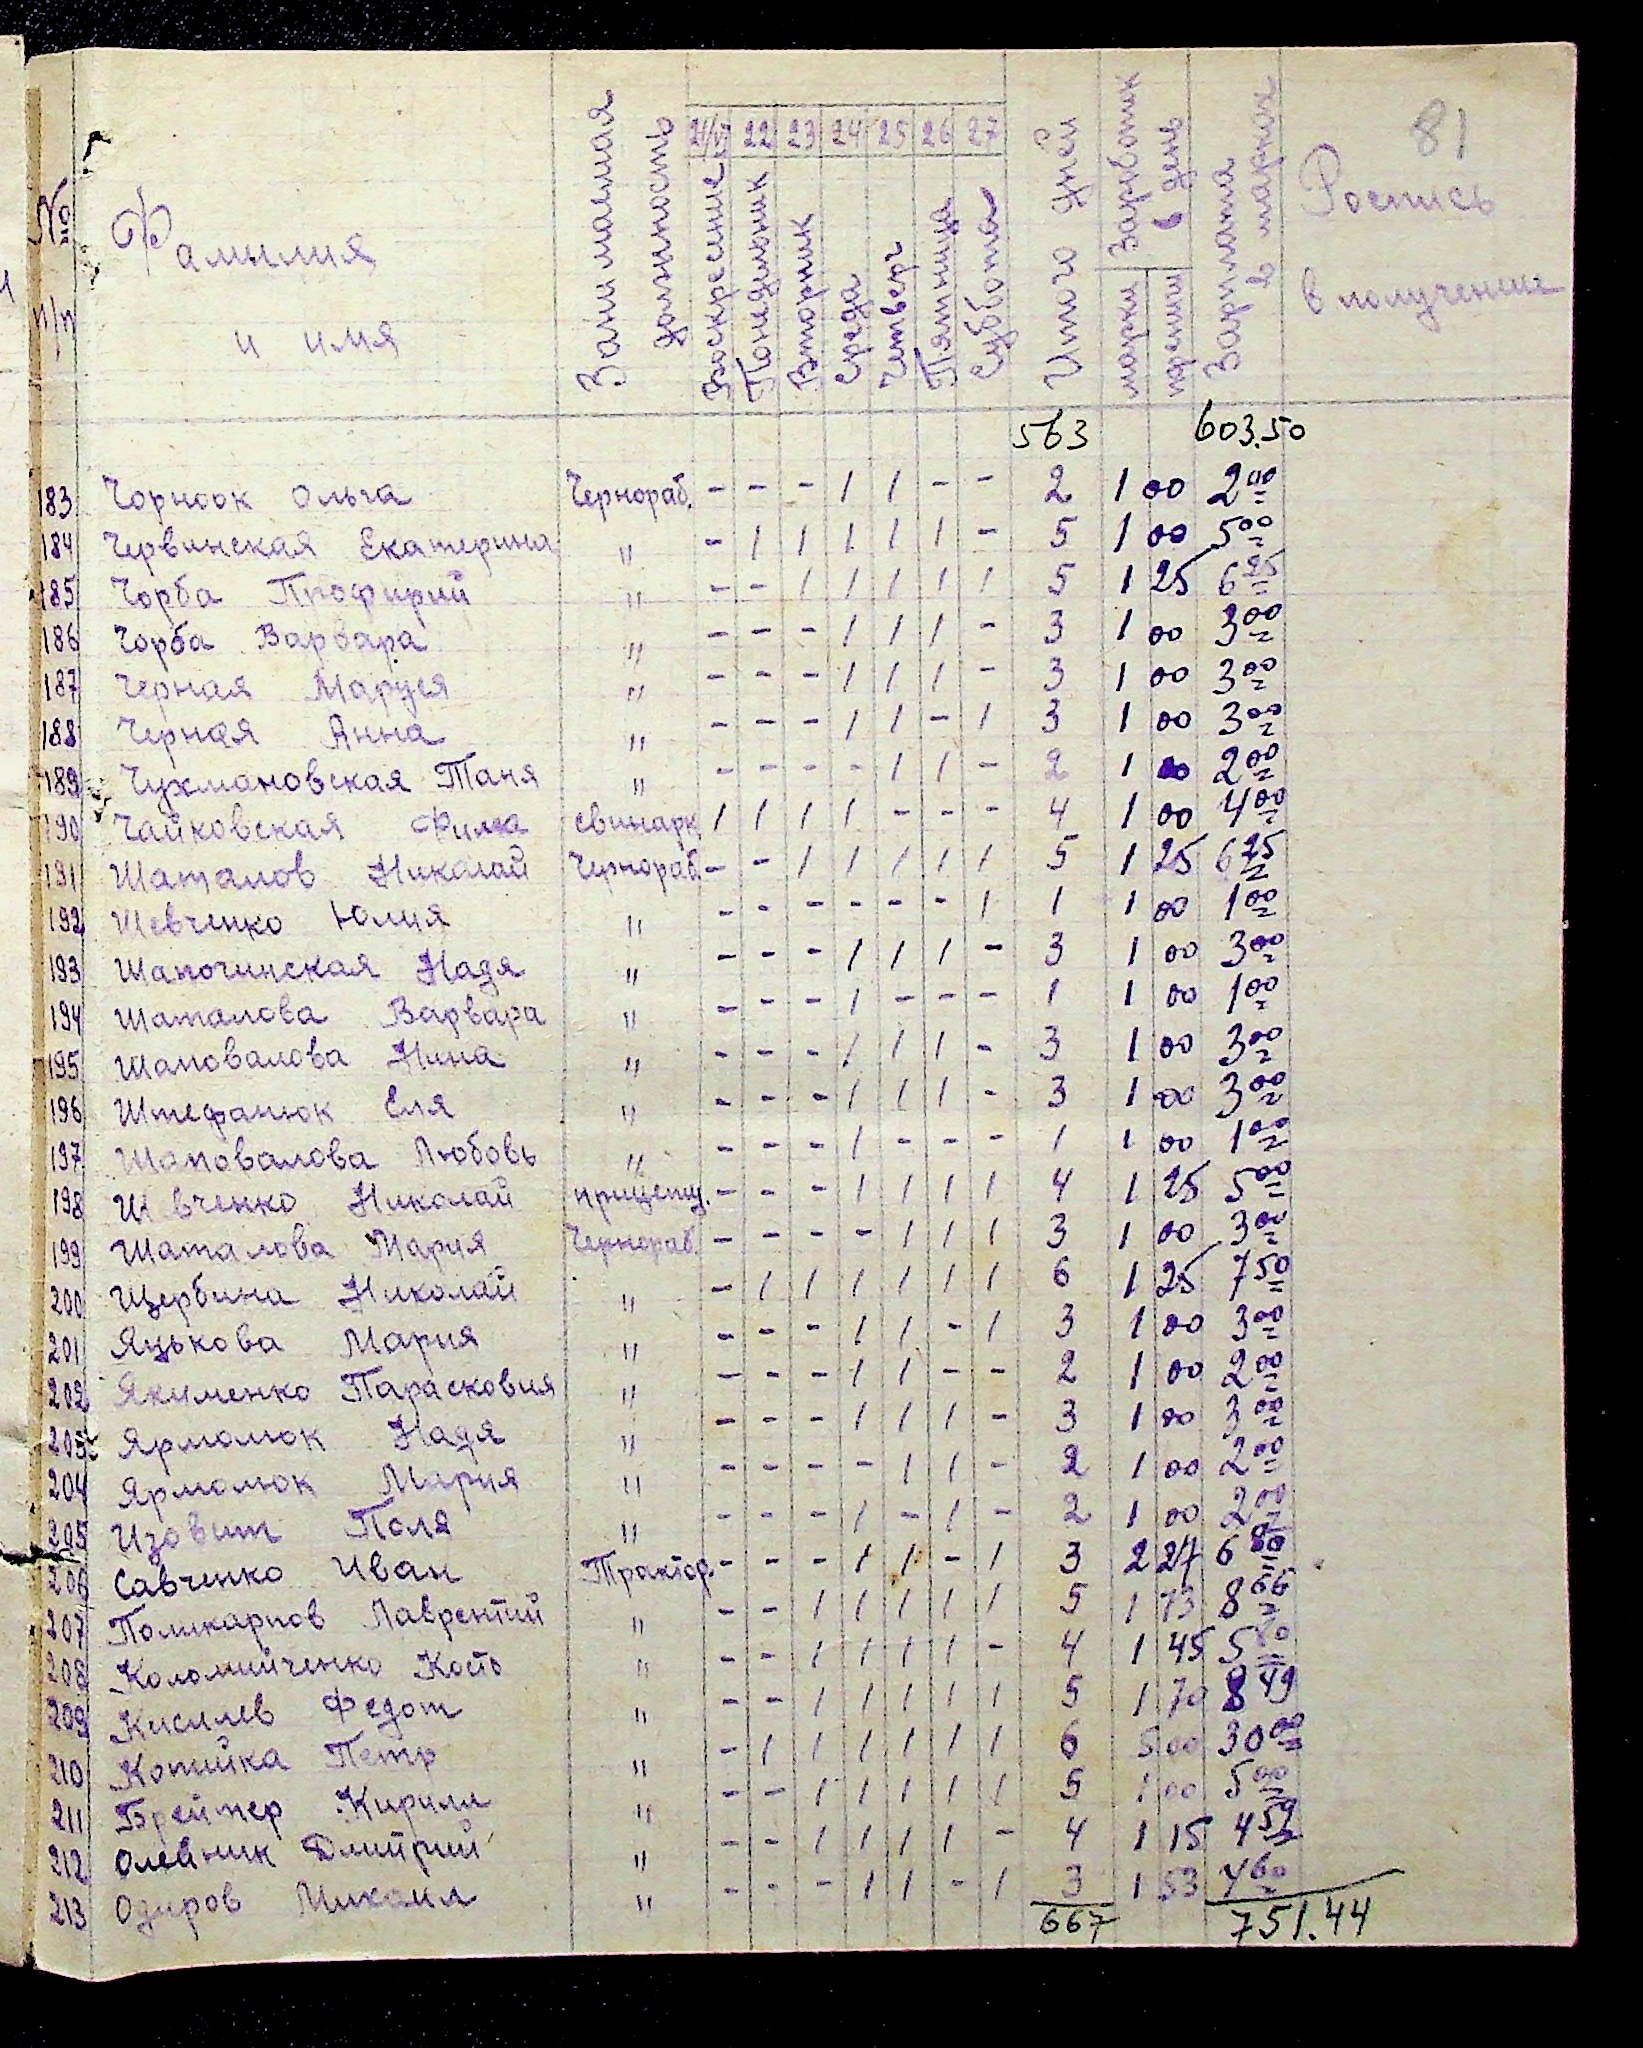 81
№ п/п
Фамилия и имя
Занимаемая должность
21/VI 22 23 24 25 26 27
Воскресение Понидельник Вторник Среда Четверг Пятница Суббота
Итого дней
Заработок в день
марки
Зарплата в марках
Роспись в получении
563 603.50
183 Чорноок Ольга Чернораб. - - - / / - - 2 1 00 2 00
184 Червинская Екатерина " - / / / / / - 5 1 00 5 00
185 Чорба Профирий " - - / / / / / 5 1 25 6 25
186 Чорба Варвара " - - - / / / - 3 1 00 3 00
187 Черная Маруся " - - - / / / - 3 1 00 3 00
188 Черная Анна " - - - / / - / 3 1 00 3 00
189 Чухмановская Таня " - - - - / / - 2 1 00 2 00
190 Чайковская Фима свинарк / / / / - - - 4 1 00 4 00
191 Шаталов Николай Чернораб. - - / / / / / 5 1 25 6 25
192 Шевченко Юлия " - - - - - - / 1 1 00 1 00
193 Шапочинская Надя " - - - / / / - 3 1 00 3 00
194 Шаталова Варвара " - - - / - - - 1 1 00 1 00
195 Шаповалова Нина " - - - / / / - 3 1 00 3 00
196 Штефанюк Еля " - - - / / / - 3 1 00 3 00
197 Шаповалова Любовь " - - - / - - - 1 1 00 1 00
198 Шевченко Николай прицепщ. - - - / / / / 4 1 25 5 00
199 Шаталова Мария Чернораб. - - - - / / / 3 1 00 3 00
200 Щербина Николай " - / / / / / / 6 1 25 7 50
201 Яцькова Мария " - - - / / - / 3 1 00 3 00
202 Якименко Парасковия " - - - / / - - 2 1 00 2 00
203 Ярмолюк Надя " - - - / / / - 3 1 00 3 00
204 Ярмолюк Мария " - - - - / / - 2 1 00 2 00
205 Изовит Поля " - - - / - / - 2 1 00 2 00
206 Савченко Иван Трактор. - - - / / - / 3 2 27 6 80
207 Поликарпов Лаврентий " - - / / / / / 5 1 73 8 66
208 Коломийченко Кость " - - / / / / - 4 1 45 5 80
209 Киселев Федот " - - / / / / / 5 1 70 8 49
210 Копийка Петр " - / / / / / / 6 5 00 30 00
211 Брейтер Кирилл " - - / / / / / 5 1 00 5 00
212 Олейник Дмитрий " - - / / / / - 4 1 15 4 59
213 Одиров Михаил " - - - / / - / 3 1 53 4 60
667 751.44